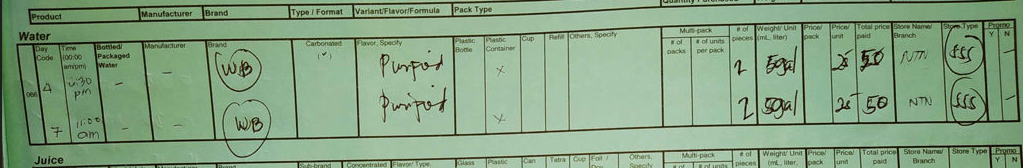 Product Manufacturer Brand Type / Format Variant/Flavor/Formula Pack Type
Water
Day Code Time (00:00 am/pm) Bottled/ Packaged Water Manufacturer Brand Carbonated (✓) Flavor, Specify Plastic Bottle Plastic Container Cup Refill Others, Specify Multi-pack # of packs # of units per pack # of pieces Weight/ Unit (mL, liter) Price/ pack Price/ unit Total price paid Store Name/ Branch Store Type Promo Y N
066 4 4:30 pm - - WB Purified x 2 5gal 25 50 NTN SSS -
7 11:00 am - - WB Purified x 2 5gal 25 50 NTN SSS -
Juice
Manufacturer Brand Sub-brand Concentrated Flavor/ Type, Glass Plastic Can Tetra Cup Foil / Others, Specify Multi-pack # of # of units # of pieces Weight/ Unit (mL, liter, Price/ pack Price/ unit Total price paid Store Name/ Branch Store Type Promo Y N